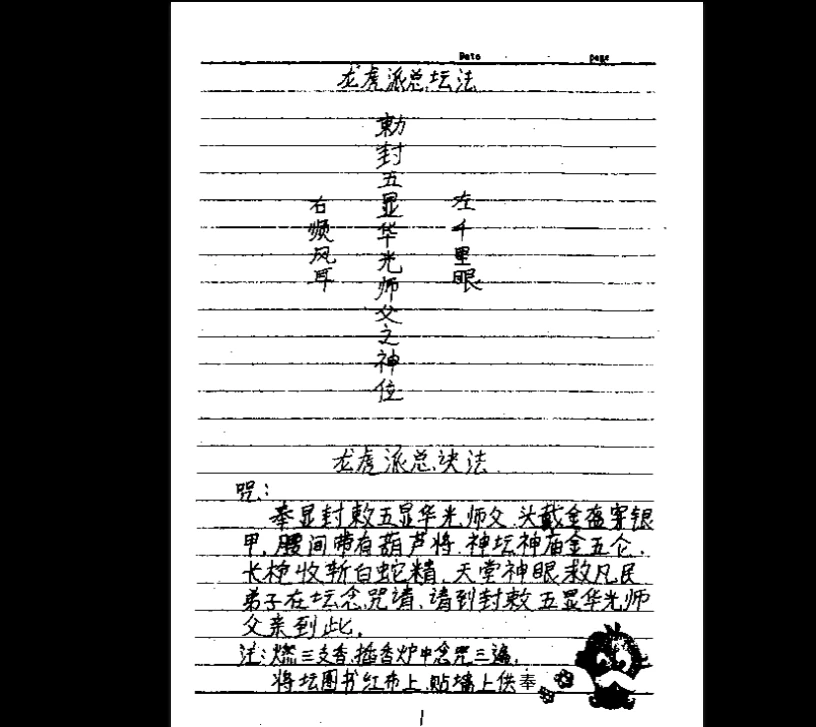 Date page
龙虎派总坛法
勅封五显华光师父之神位
左千里眼
右顺风耳
龙虎派总决法
咒:
奉显封敕五显华光师父.头戴金盔穿银
甲,腰间带有葫芦将.神坛神庙金五仑.
长枪收斩白蛇精,天堂神眼救凡民
弟子在坛念咒请,请到封敕五显华光师
父亲到此.
注:燃三支香,插香炉中念咒三遍,
将坛图书红布上,贴墙上供奉
1